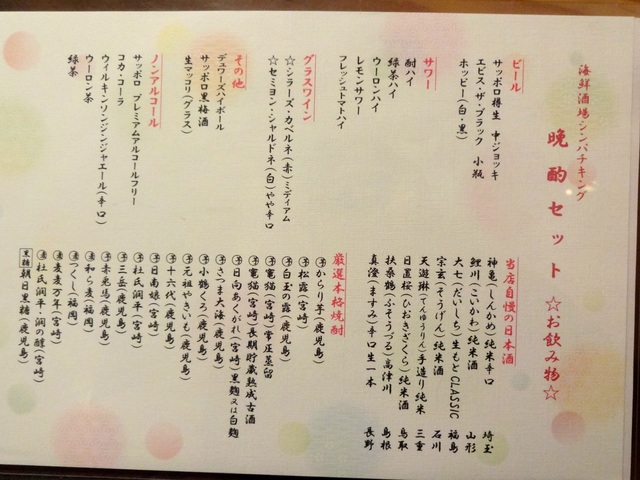 海鮮酒場シンパチキング
晩酌セット ☆お飲み物☆
ビール
サッポロ樽生 中ジョッキ
エビス・ザ・ブラック 小瓶
ホッピー(白・黒)
サワー
酎ハイ
緑茶ハイ
ウーロンハイ
レモンサワー
フレッシュトマトハイ
グラスワイン
☆シラーズ・カベルネ(赤)ミディアム
☆セミヨン・シャルドネ(白)やや辛口
その他
デュワーズハイボール
サッポロ黒梅酒
生マッコリ(グラス)
ノンアルコール
サッポロ プレミアムアルコールフリー
コカ・コーラ
ウィルキンソンジンジャエール(辛口)
ウーロン茶
緑茶
当店自慢の日本酒
神亀(しんかめ)純米辛口 埼玉
鯉川(こいかわ)純米酒 山形
大七(だいしち)生もとCLASSIC 福島
宗玄(そうげん)純米酒 石川
天遊琳(てんゆうりん)手造り純米 三重
日置桜(ひおきざくら)純米酒 鳥取
扶桑鶴(ふそうづる)高津川 島根
真澄(ますみ)辛口生一本 長野
厳選本格焼酎
芋からり芋(鹿児島)
芋松露(宮崎)
芋白玉の露(鹿児島)
芋竃猫(宮崎)常圧蒸留
芋竃猫(宮崎)長期貯蔵熟成古酒
芋日向あくがれ(宮崎)黒麹又は白麹
芋さつま大海(鹿児島)
芋小鶴くろ(鹿児島)
芋元祖やきいも(鹿児島)
芋十六代(鹿児島)
芋日南娘(宮崎)
芋杜氏潤平(宮崎)
芋三岳(鹿児島)
芋赤兎馬(鹿児島)
麦和ら麦(福岡)
麦つくし(福岡)
麦麦麦万年(宮崎)
麦杜氏潤平・潤の醇(宮崎)
黒糖朝日黒糖(鹿児島)